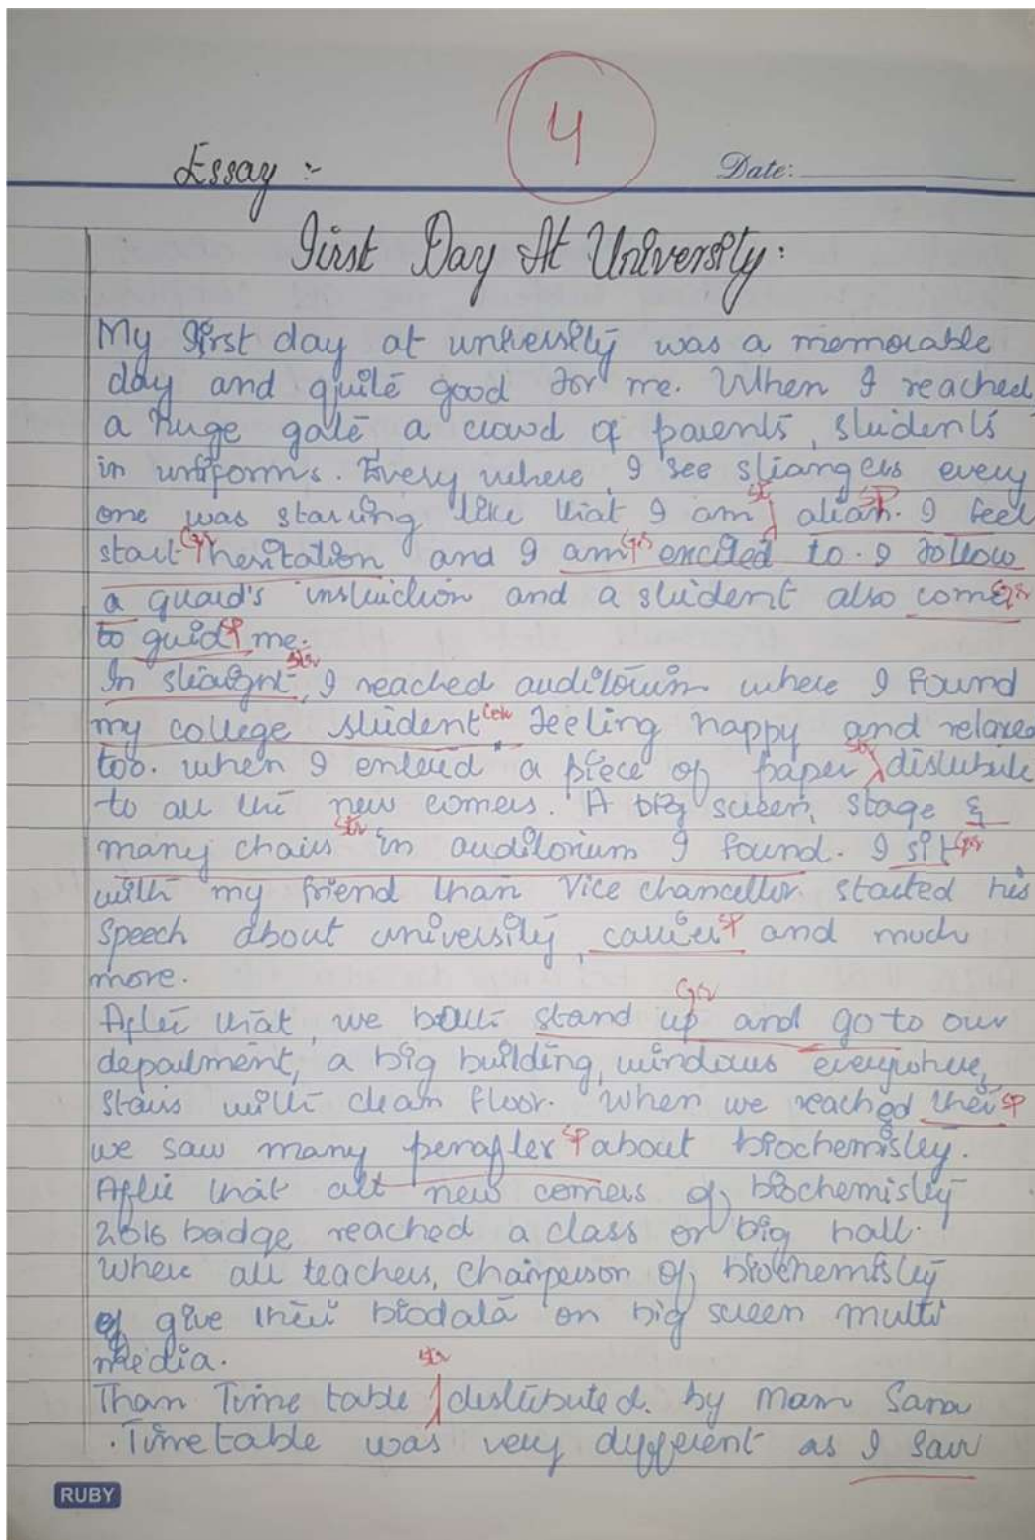 4
Essay :-
Date:
First Day At University:
My first day at university was a memorable
day and quite good for me. When I reached
a huge gate a crowd of parents, students
in uniforms. Every where, I see strangers every
one was staring like that I am str alian. sp I feel
start Gr hesitation and I am Gr excited to. I follow
a guard's instruction and a student also come Gr
to guid sp me.
In straight str, I reached auditorium where I found
my college student, feeling happy and relaxed
too. when I entered a piece of paper str distribute
to all the new comers. A big screen, stage &
many chairs str in auditorium I found. I sit Gr
with my friend than Vice chancellor started his
speech about university, carrier sp and much
more.
Gr
After that, we both stand up and go to our
department, a big building, windows everywhere,
stairs with clean floor. When we reached their sp
we saw many penafler sp about biochemistry.
After that all new comers of biochemistry
2016 badge reached a class or big hall.
Where all teachers, Chairperson of biochemistry
give their biodata on big screen multi
media.
str
Than Time table distributed. by Mam Sana
. Time table was very different as I saw
RUBY